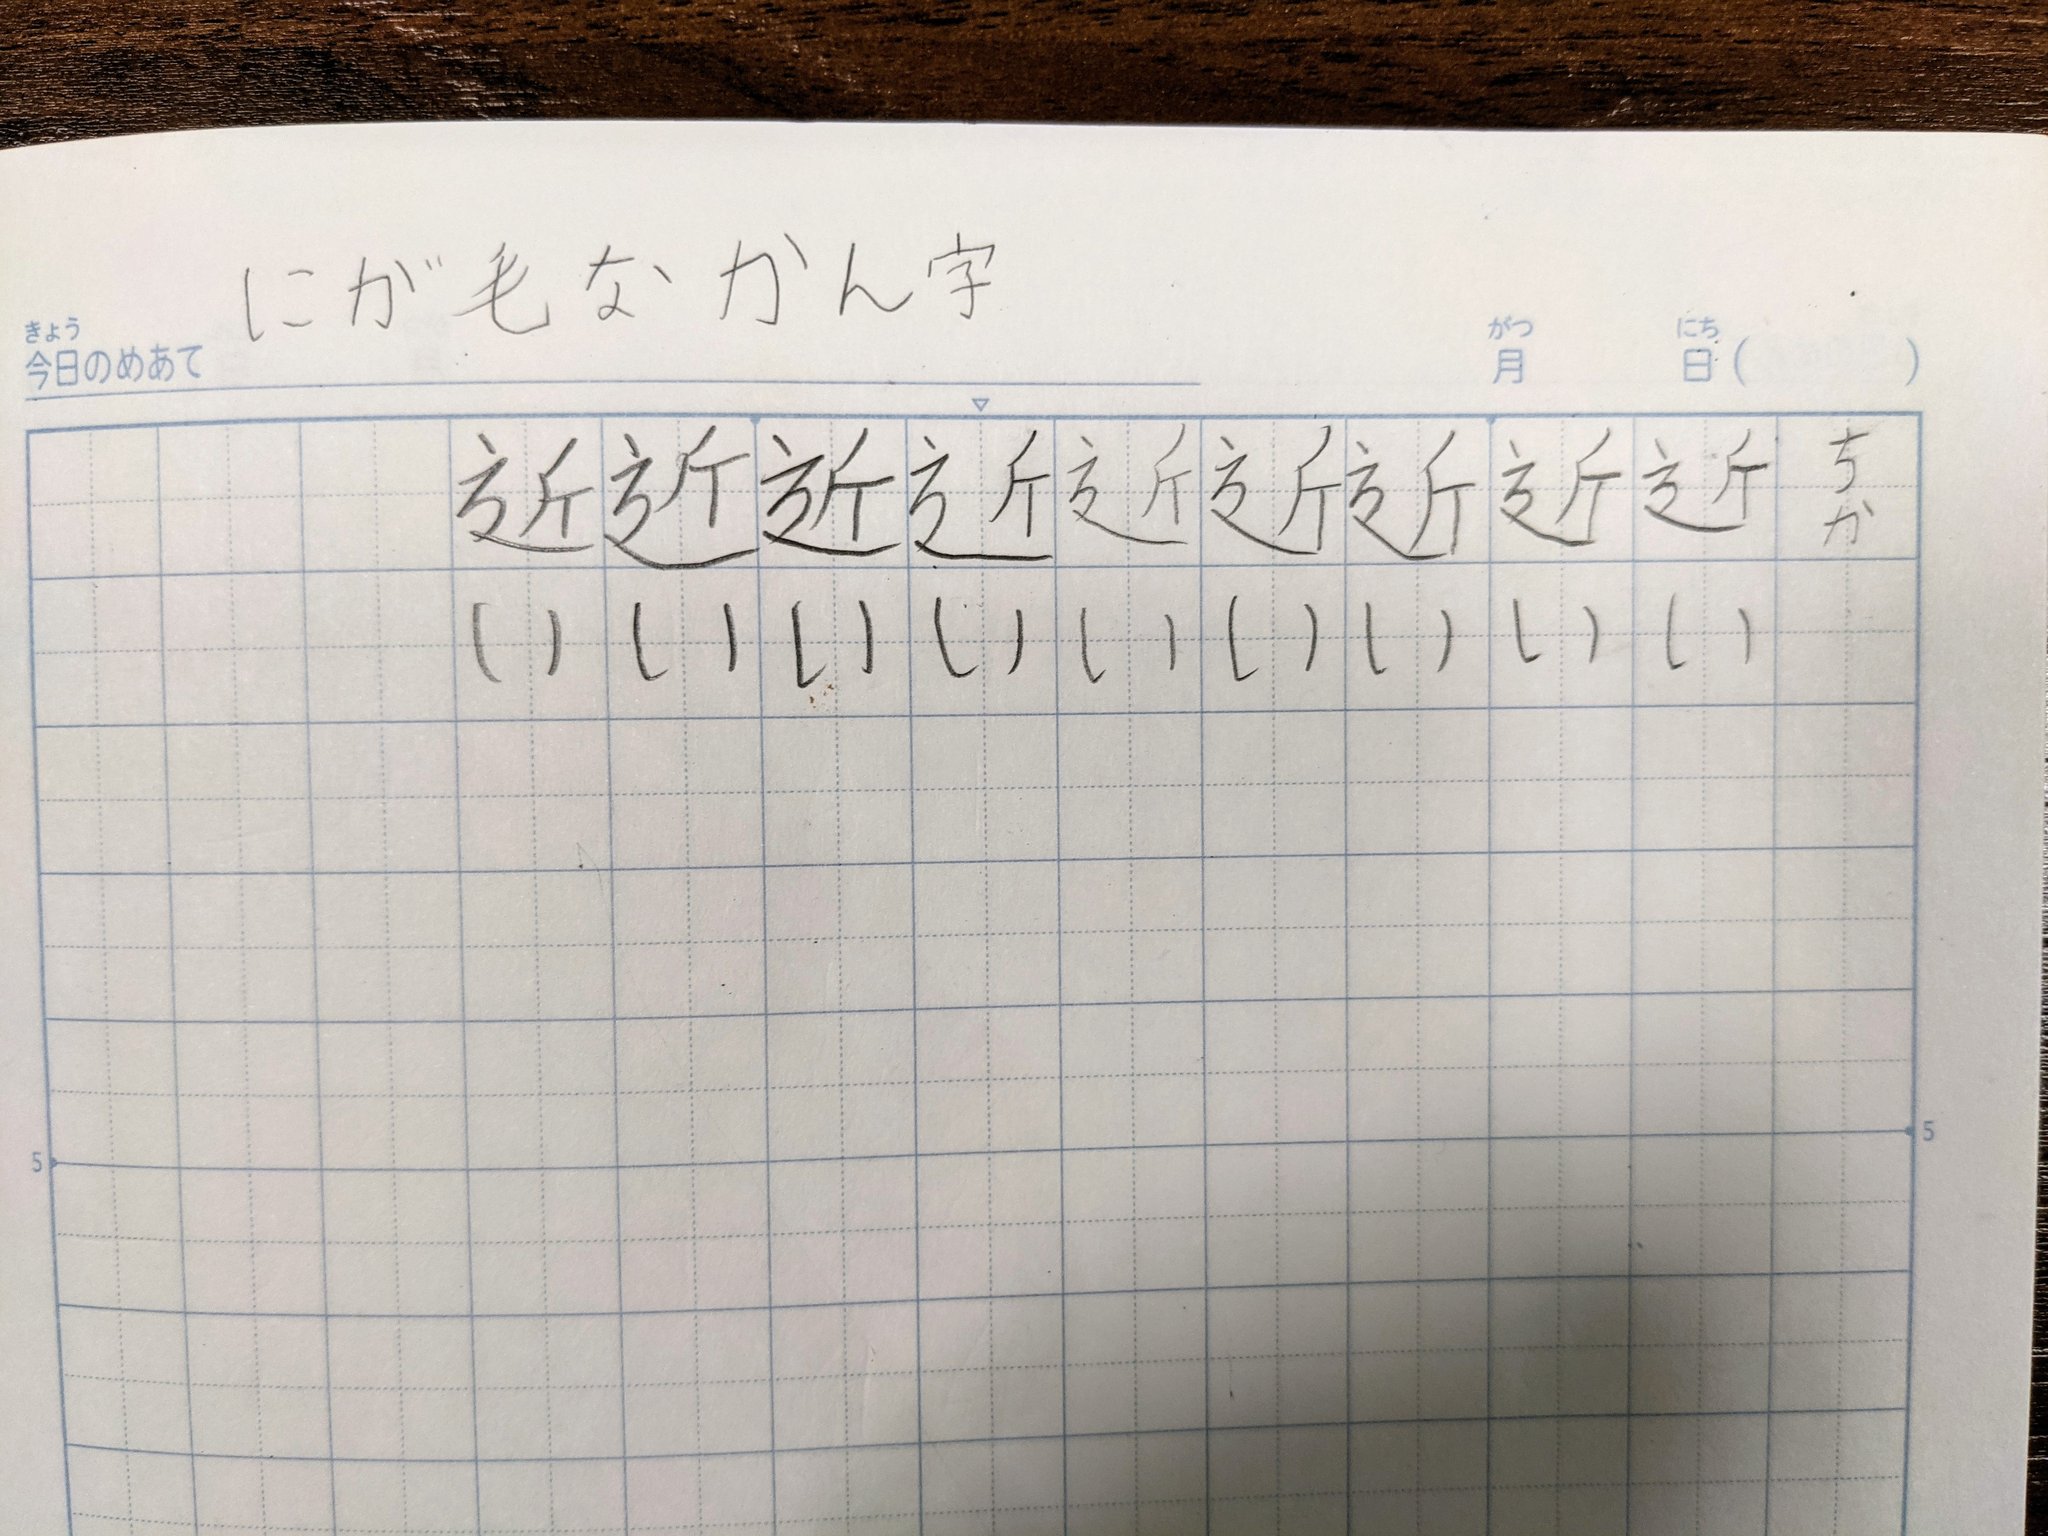 にが毛なかん字
きょう
今日のめあて
がつ
月
にち
日( )
ちか
近い
近い
近い
近い
近い
近い
近い
近い
近い
5
5